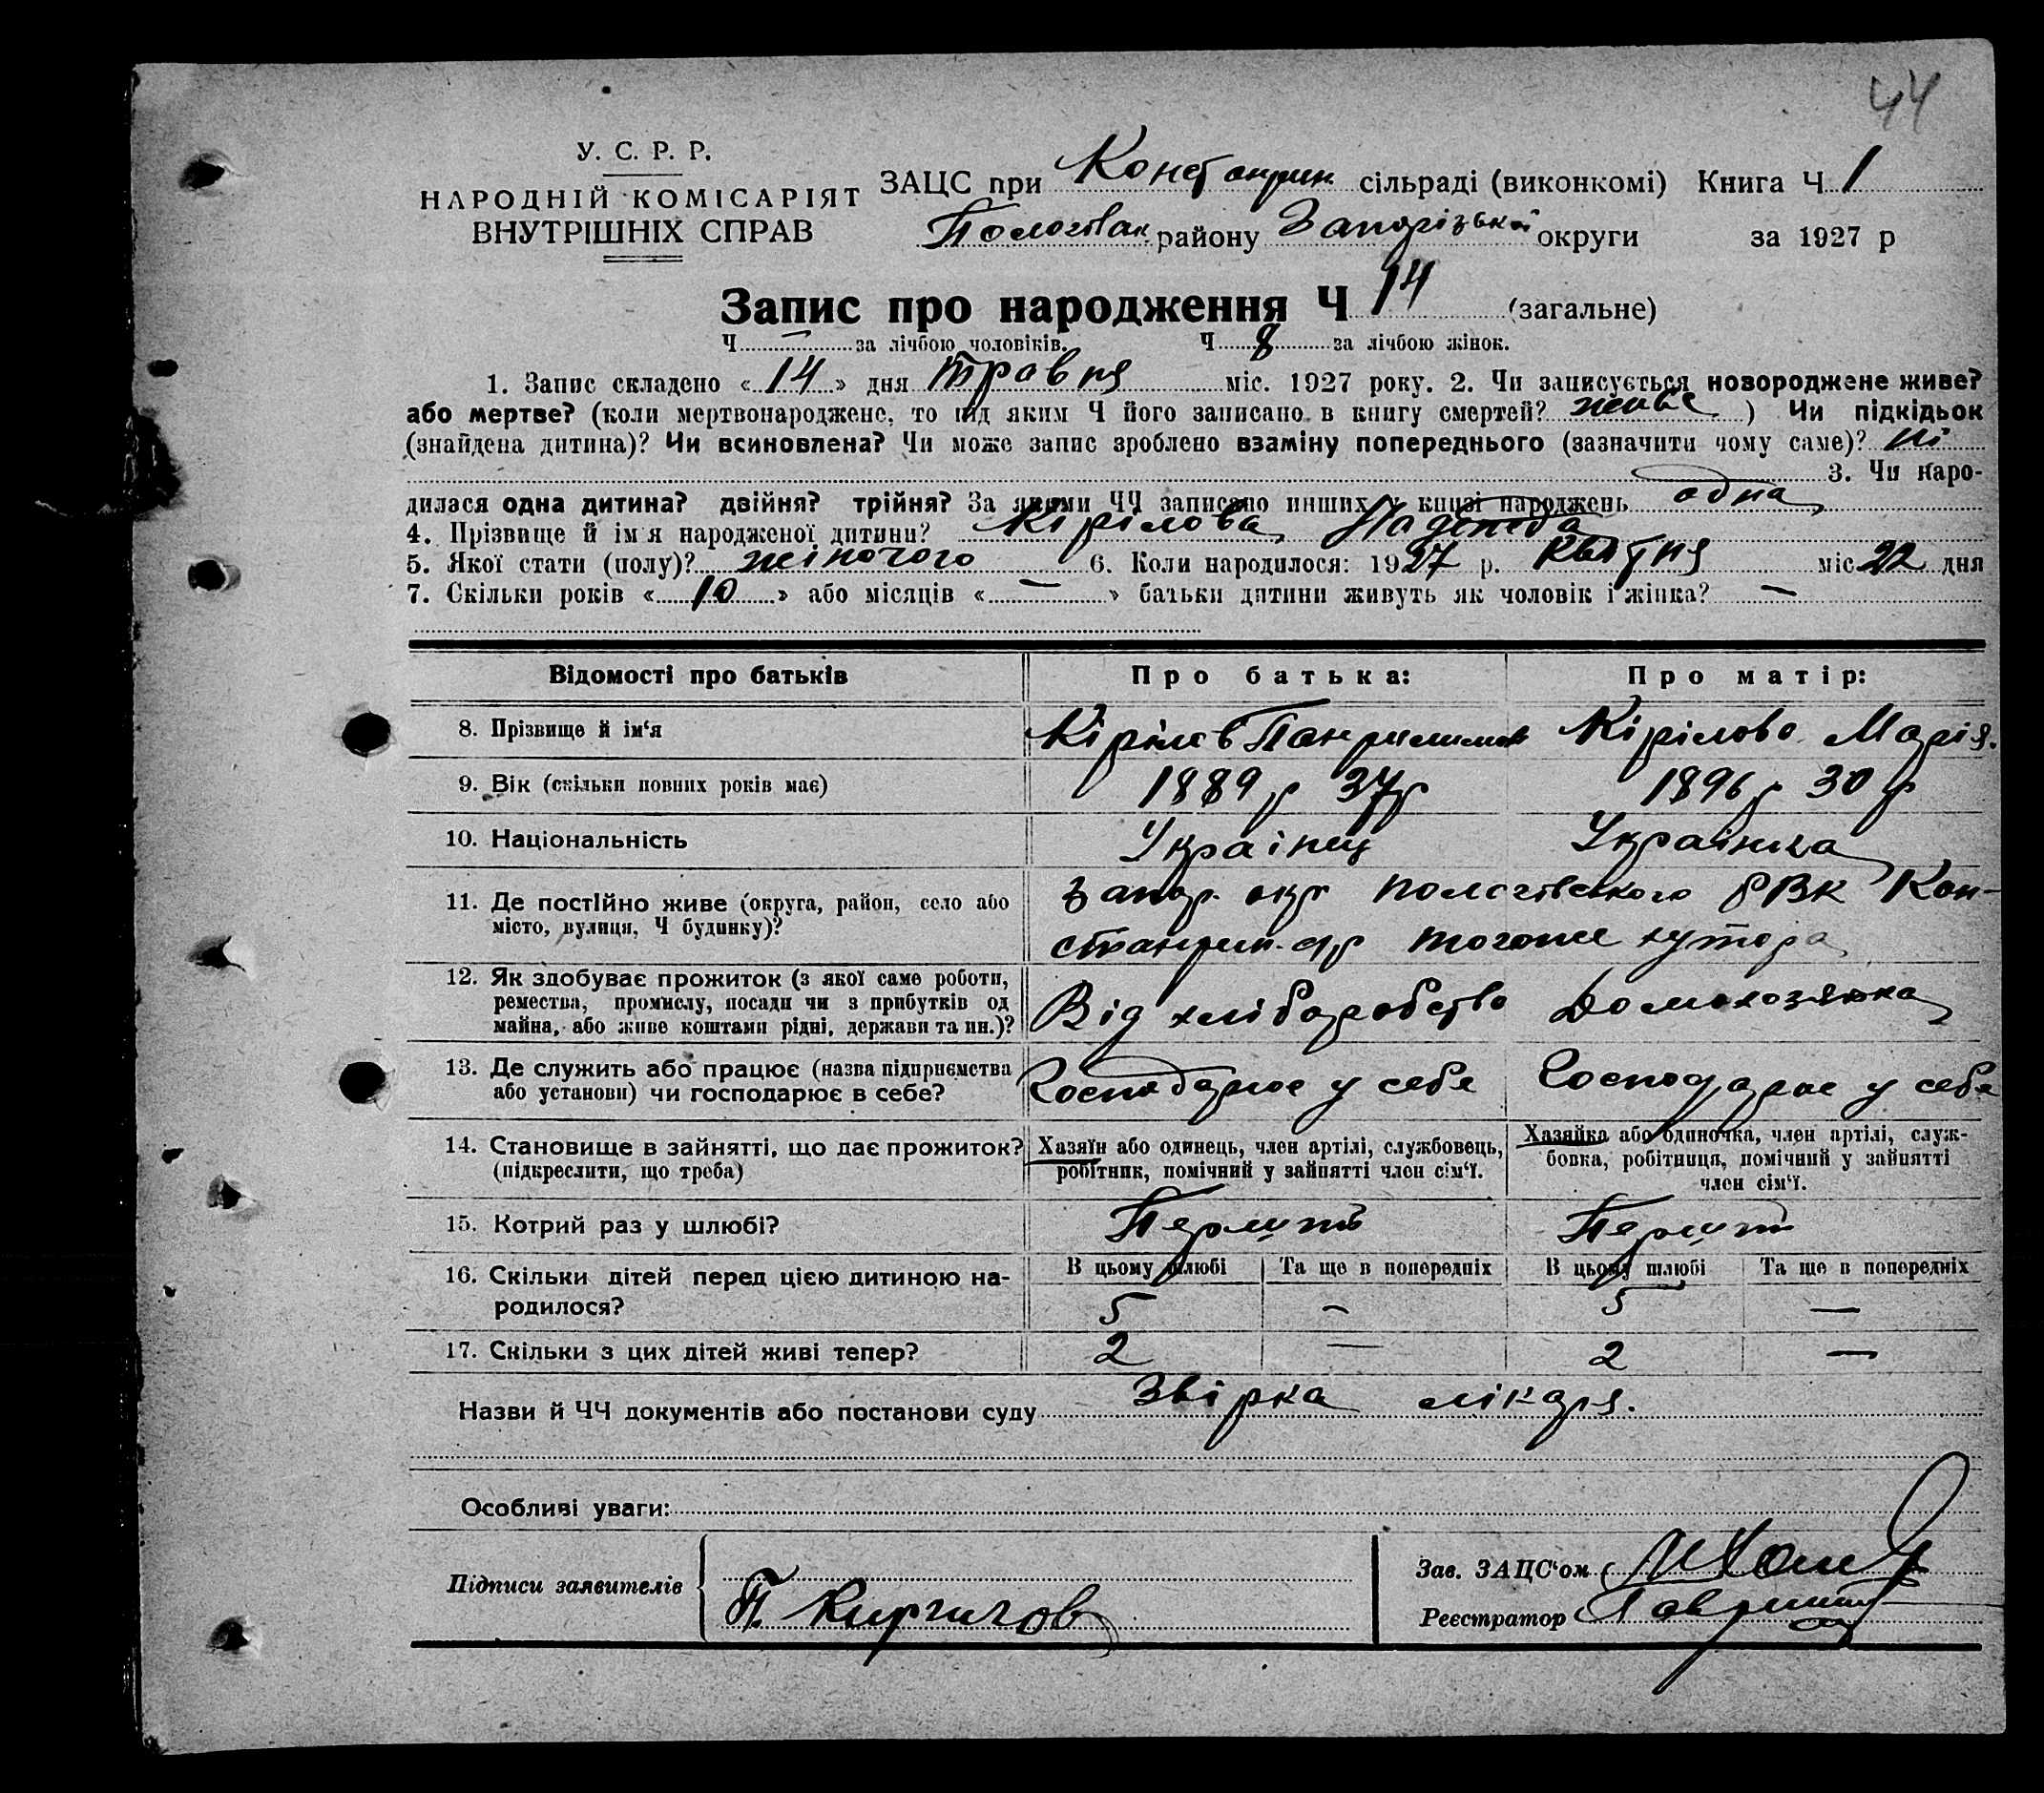 44
У. С. Р. Р.
НАРОДНІЙ КОМІСАРІЯТ
ВНУТРІШНІХ СПРАВ
ЗАЦС при сільраді (виконкомі) Книга Ч 1
району Запорізької округи за 1927 р
Запис про народження Ч 14 (загальне)
Ч — за лічбою чоловіків. Ч 8 за лічбою жінок.
1. Запис складено «14» дня травня міс. 1927 року. 2. Чи записується новороджене живе?
або мертве? (коли мертвонароджене, то під яким Ч його записано в книгу смертей? живе ) Чи підкідьок
(знайдена дитина)? Чи всиновлена? Чи може запис зроблено взаміну попереднього (зазначити чому саме)? ні
3. Чи наро-
дилася одна дитина? двійня? трійня? За якими ЧЧ записано инших у книзі народжень одна
4. Прізвище й ім'я народженої дитини? Кірілова Надежда
5. Якої стати (полу)? жіночого 6. Коли народилося: 1927 р. квітня міс. 22 дня
7. Скільки років «10» або місяців « — » батьки дитини живуть як чоловік і жінка? —
Відомості про батьків Про батька: Про матір:
8. Прізвище й ім'я Кірілов Кірілова Марія.
9. Вік (скільки повних років має) 1889 р 37 р 1896 р 30 р
10. Національність Українец Українка
11. Де постійно живе (округа, район, село або
місто, вулиця, Ч будинку)?
Запор. окр Пологовського РВК Кон-
тогоже хутора
12. Як здобуває прожиток (з якої саме роботи,
ремества, промислу, посади чи з прибутків од
майна, або живе коштами рідні, держави та ин.)?
Від хліборобство Домохозяйка
13. Де служить або працює (назва підприємства
або установи) чи господарює в себе?
Господарює у себе Господарює у себе
14. Становище в зайнятті, що дає прожиток?
(підкреслити, що треба)
Хазяїн або одинець, член артілі, службовець,
робітник, помічний у зайнятті член сім'ї.
Хазяйка або одиночка, член артілі, служ-
бовка, робітниця, помічний у зайнятті
член сім'ї.
15. Котрий раз у шлюбі? Перший Перший
16. Скільки дітей перед цією дитиною на-
родилося?
В цьому шлюбі Та ще в попередніх В цьому шлюбі Та ще в попередніх
5 — 5 —
17. Скільки з цих дітей живі тепер? 2 — 2 —
Назви й ЧЧ документів або постанови суду Звірка лікаря.
Особливі уваги:
Підписи заявителів
Зав. ЗАЦС'ом
Реєстратор